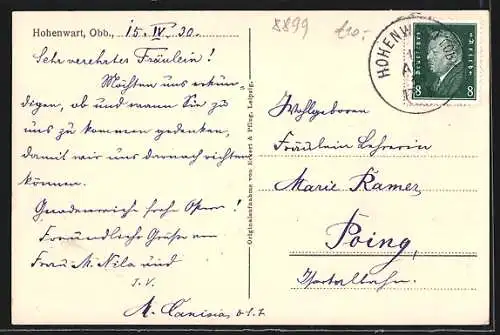 Hohenwart, Obb., 15. IV. 30.
8899
£10.-
Sehr verehrtes Fräulein!
Möchten uns erkun-
digen, ob und wann Sie zu
uns zu kommen gedenken,
damit wir uns darnach richten
können.
Gnadenreiche frohe Ostern!
Freundliche Grüße von
Frau M. Nila und
I. V.
M. Canisia,
Originalaufnahme von Eckert & Pflug, Leipzig.
HOHENW
Deutsches Reich
8 8
Wohlgeboren
Fräulein Lehrerin
Marie Ramer,
Poing,